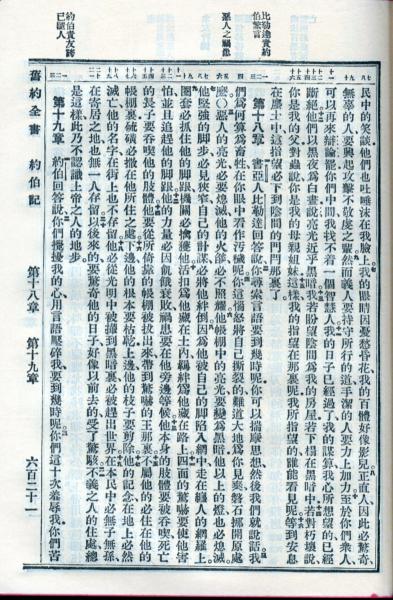 比勒達責約
伯繁言
惡人之禍患
約伯責友誇
己慢人
民中的笑談他們也吐唾沫在我臉上我的眼睛因憂愁昏花我的百體好像影兒正直人因此必驚奇
無辜的人要興起攻擊不敬虔之輩然而義人要持守所行的道手潔的人要力上加力至於你們衆人
可以再來辯論罷你們中間我找不着一個智慧人我的日子已經過了我的謀算我心所想望的已經
斷絕他們以黑夜爲白晝說亮光近乎黑暗我若盼望陰間爲我的房屋若下榻在黑暗中若對朽壞說
你是我的父對蟲說你是我的母親姐妹這樣我的指望在那裏呢我所指望的誰能看見呢等到安息
在塵土中這指望必下到陰間的門閂那裏了
第十八章 書亞人比勒達回答說你尋索言語要到幾時呢你可以揣摩思想然後我們就說話我
們爲何算爲畜牲在你眼中看作汚穢呢你這惱怒將自己撕裂的難道大地爲你見棄磐石挪開原處
麼〇惡人的亮光必要熄滅他的火燄必不照耀他帳棚中的亮光要變爲黑暗他以上的燈也必熄滅
他堅強的脚步必見狹窄自己的計謀必將他絆倒因爲他被自己的脚陷入網中走在纏人的網羅上
圈套必抓住他的脚跟機關必擒獲他活扣爲他藏在土內羈絆爲他藏在路上四面的驚嚇要使他害
怕並且追趕他的脚跟他的力量必因飢餓衰敗禍患要在他旁邊等候他本身的肢體要被吞喫死亡
的長子要吞喫他的肢體他要從所倚靠的帳棚被拔出來帶到驚嚇的王那裏不屬他的必住在他的
帳棚裏硫磺必撒在他所住之處下邊他的根本要枯乾上邊他的枝子要剪除他的記念在地上必然
滅亡他的名字在街上也不存留他必從光明中被攆到黑暗裏必被趕出世界在本民中必無子無孫
在寄居之地也無一人存留以後來的要驚奇他的日子好像以前去的受了驚駭不義之人的住處總
是這樣此乃不認識上帝之人的地步
第十九章 約伯回答說你們攪擾我的心用言語壓碎我要到幾時呢你們這十次羞辱我你們苦
舊約全書 約伯記 第十八章 第十九章 六百三十一